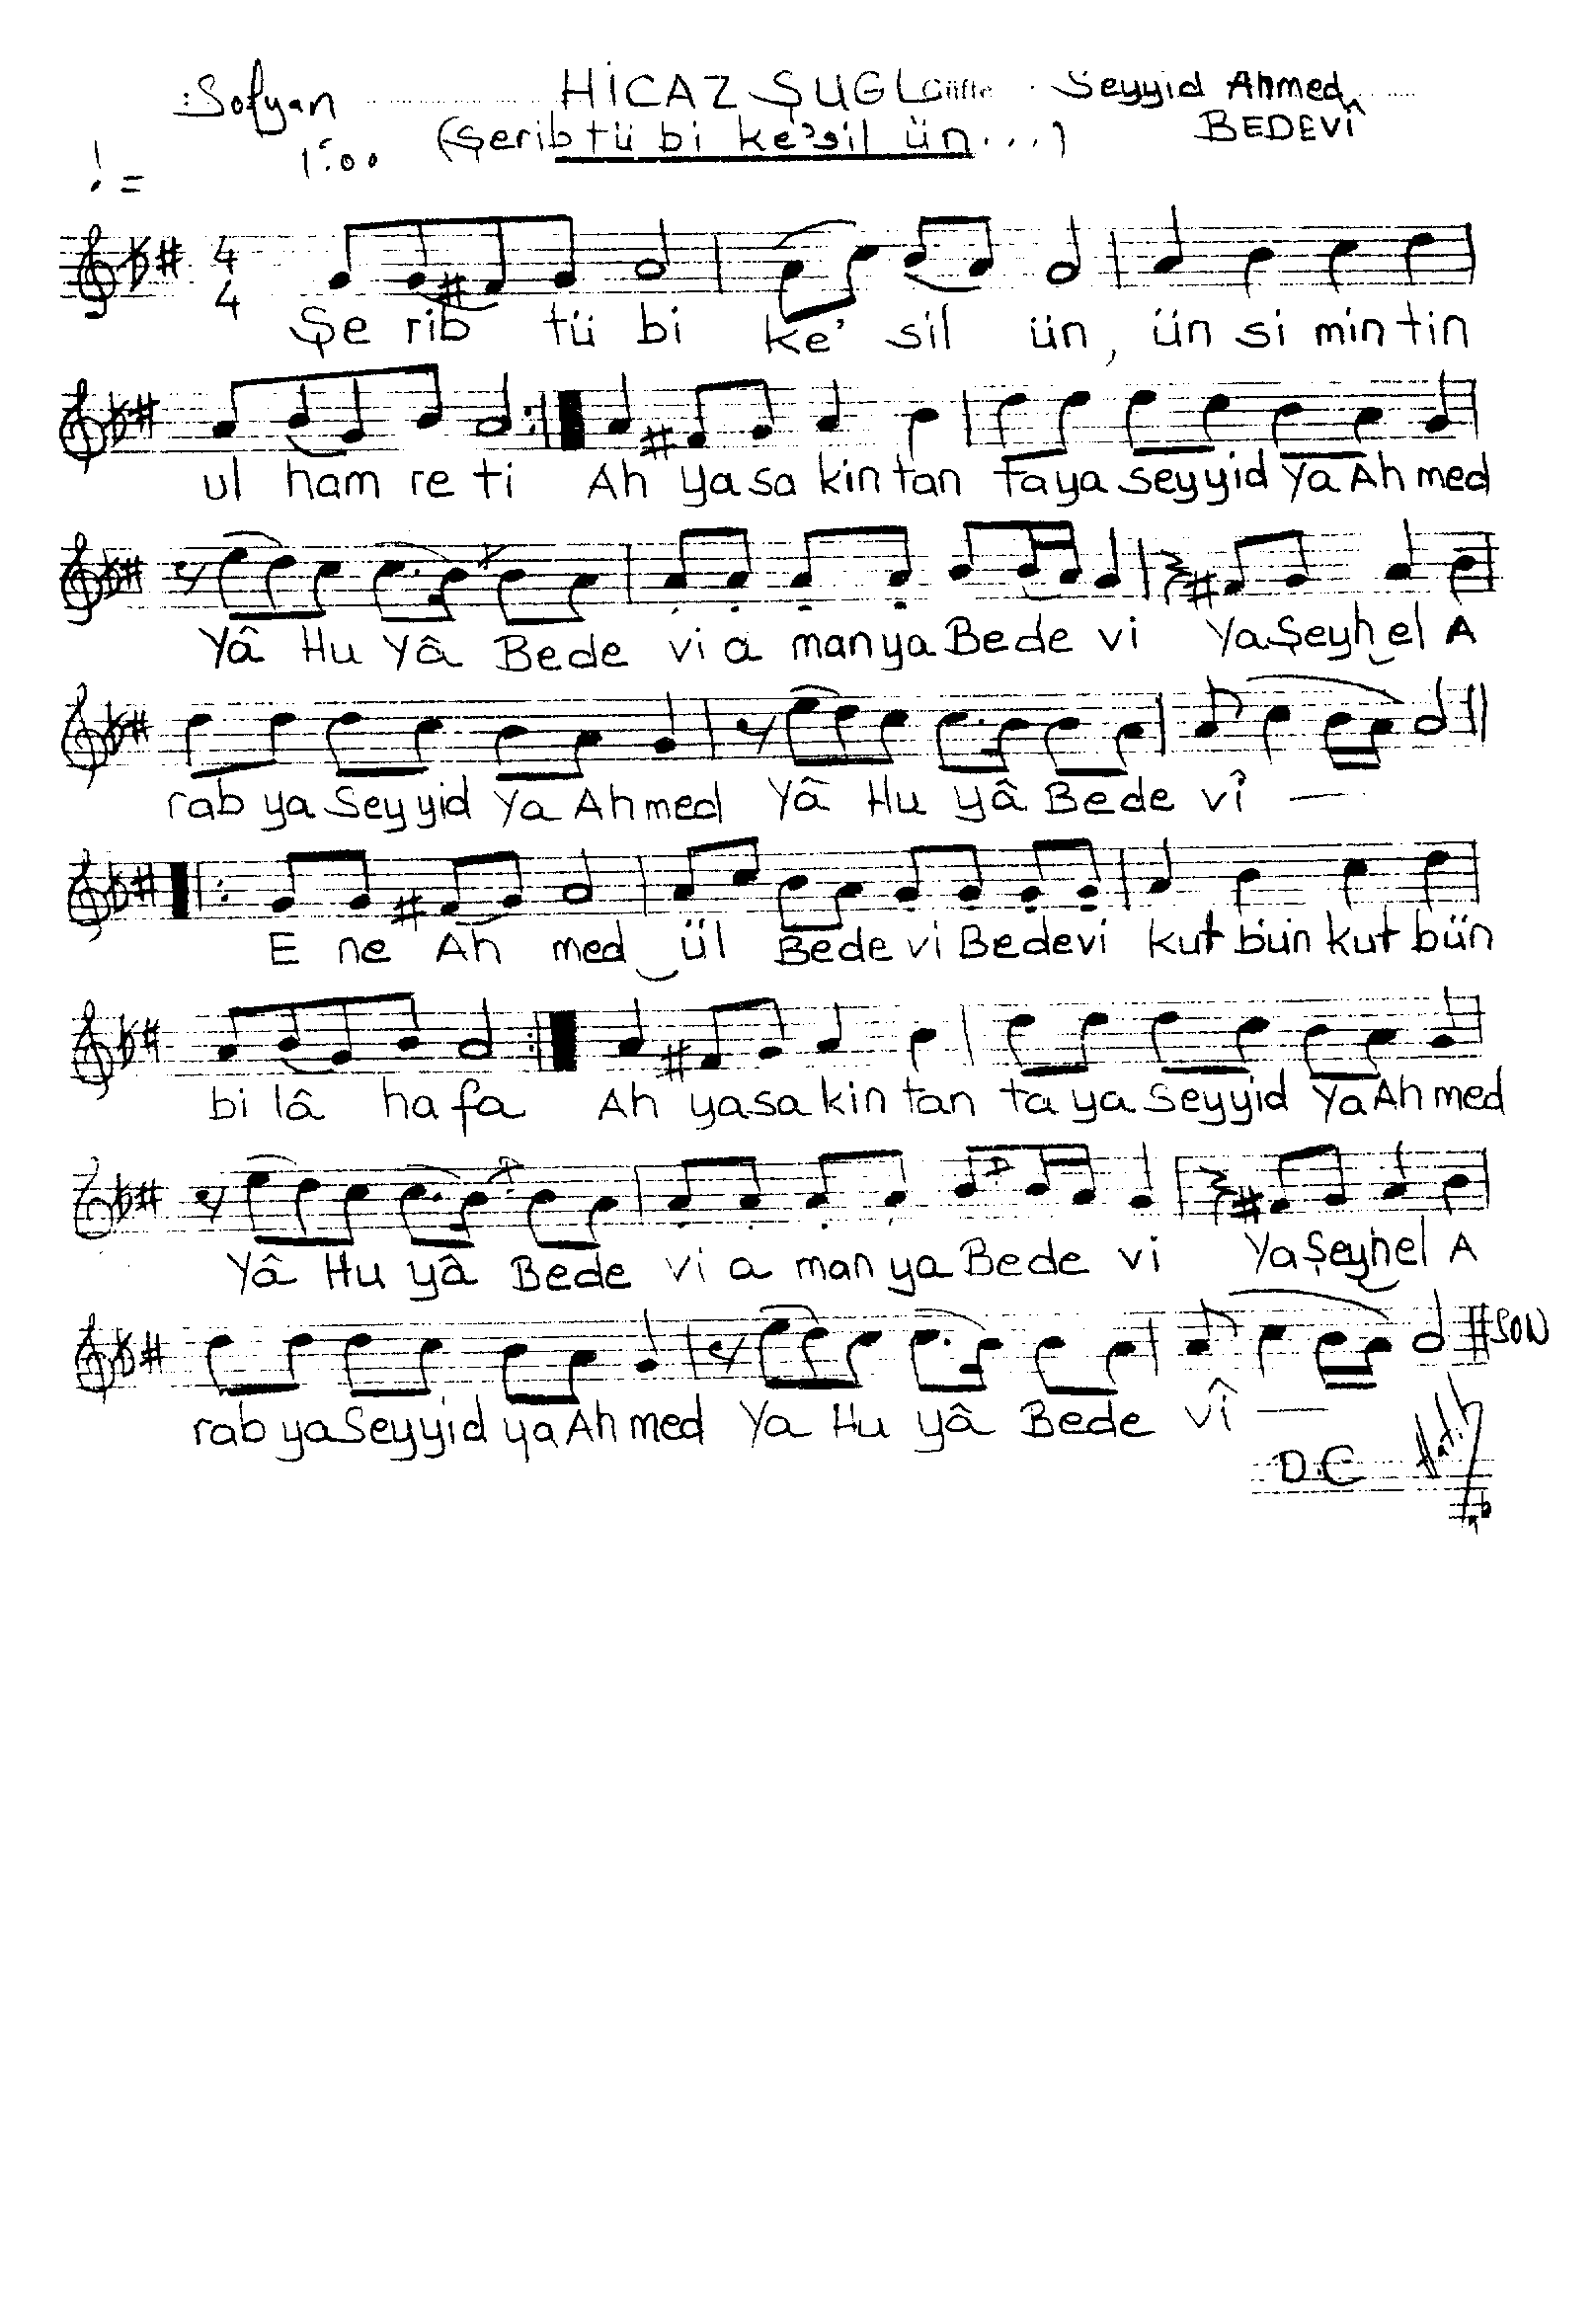 :Sofyan HİCAZ ŞUGL Güfte Seyyid Ahmed
1:00 (Şerib tü bi ke'sil ün...) BEDEVÎ
4
4
Şe rib tü bi ke' sil ün, ün si min tin
ul ham re ti Ah ya sa kin tan ta ya seyyid ya Ah med
Yâ Hu Yâ Bede vi a man ya Bede vi Ya Şeyh el A
rab ya Seyyid Ya Ahmed Yâ Hu yâ Bede vî —
E ne Ah med ül Bede vi Bedevi kut bün kut bün
bi lâ ha fa Ah ya sa kin tan ta ya Seyyid Ya Ah med
Yâ Hu yâ Bede vi a man ya Bede vi Ya Şeyh el A
SON
rab ya Seyyid ya Ah med Ya Hu yâ Bede vî —
D.C